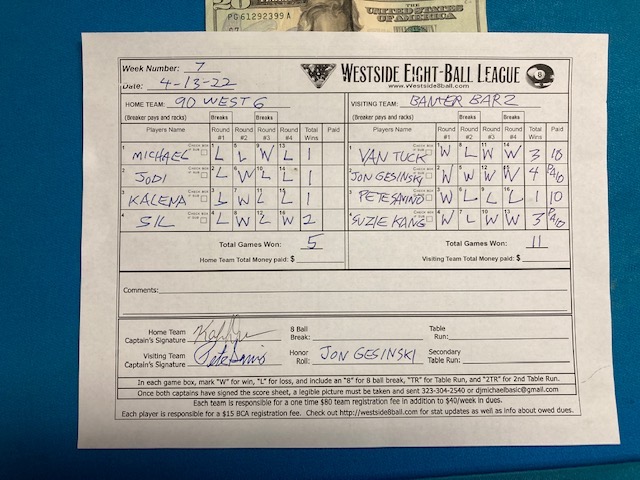 PG 61292399 A
THE UNITED STATES
OF AMERICA
Week Number: 7
Date: 4-13-22
WESTSIDE EIGHT-BALL LEAGUE 8
www.Westside8ball.com
HOME TEAM: 90 WEST 6 VISITING TEAM: BANTER BAR 2
(Breaker pays and racks) Breaks Breaks (Breaker pays and racks) Breaks Breaks
Players Name Round #1 Round #2 Round #3 Round #4 Total Wins Paid Players Name Round #1 Round #2 Round #3 Round #4 Total Wins Paid
MICHAEL L L W L 1 VAN TUCK W L W W 3 10
JODI L W L L 1 JON GESINSKI W W W W 4 PAID
KALENA L W L L 1 PETE SAVINO W L L L 1 10
SIL L W L W 2 SUZIE KANG W L W W 3 PAID
Total Games Won: 5 Total Games Won: 11
Home Team Total Money paid: $ Visiting Team Total Money paid: $
Comments:
Home Team Captain's Signature 8 Ball Break: Table Run:
Visiting Team Captain's Signature Pete Savino Honor Roll: JON GESINSKI Secondary Table Run:
In each game box, mark "W" for win, "L" for loss, and include an "8" for 8 ball break, "TR" for Table Run, and "2TR" for 2nd Table Run.
Once both captains have signed the score sheet, a legible picture must be taken and sent 323-304-2540 or djmichaelbasic@gmail.com
Each team is responsible for a one time $80 team registration fee in addition to $40/week in dues.
Each player is responsible for a $15 BCA registration fee. Check out http://westside8ball.com for stat updates as well as info about owed dues.